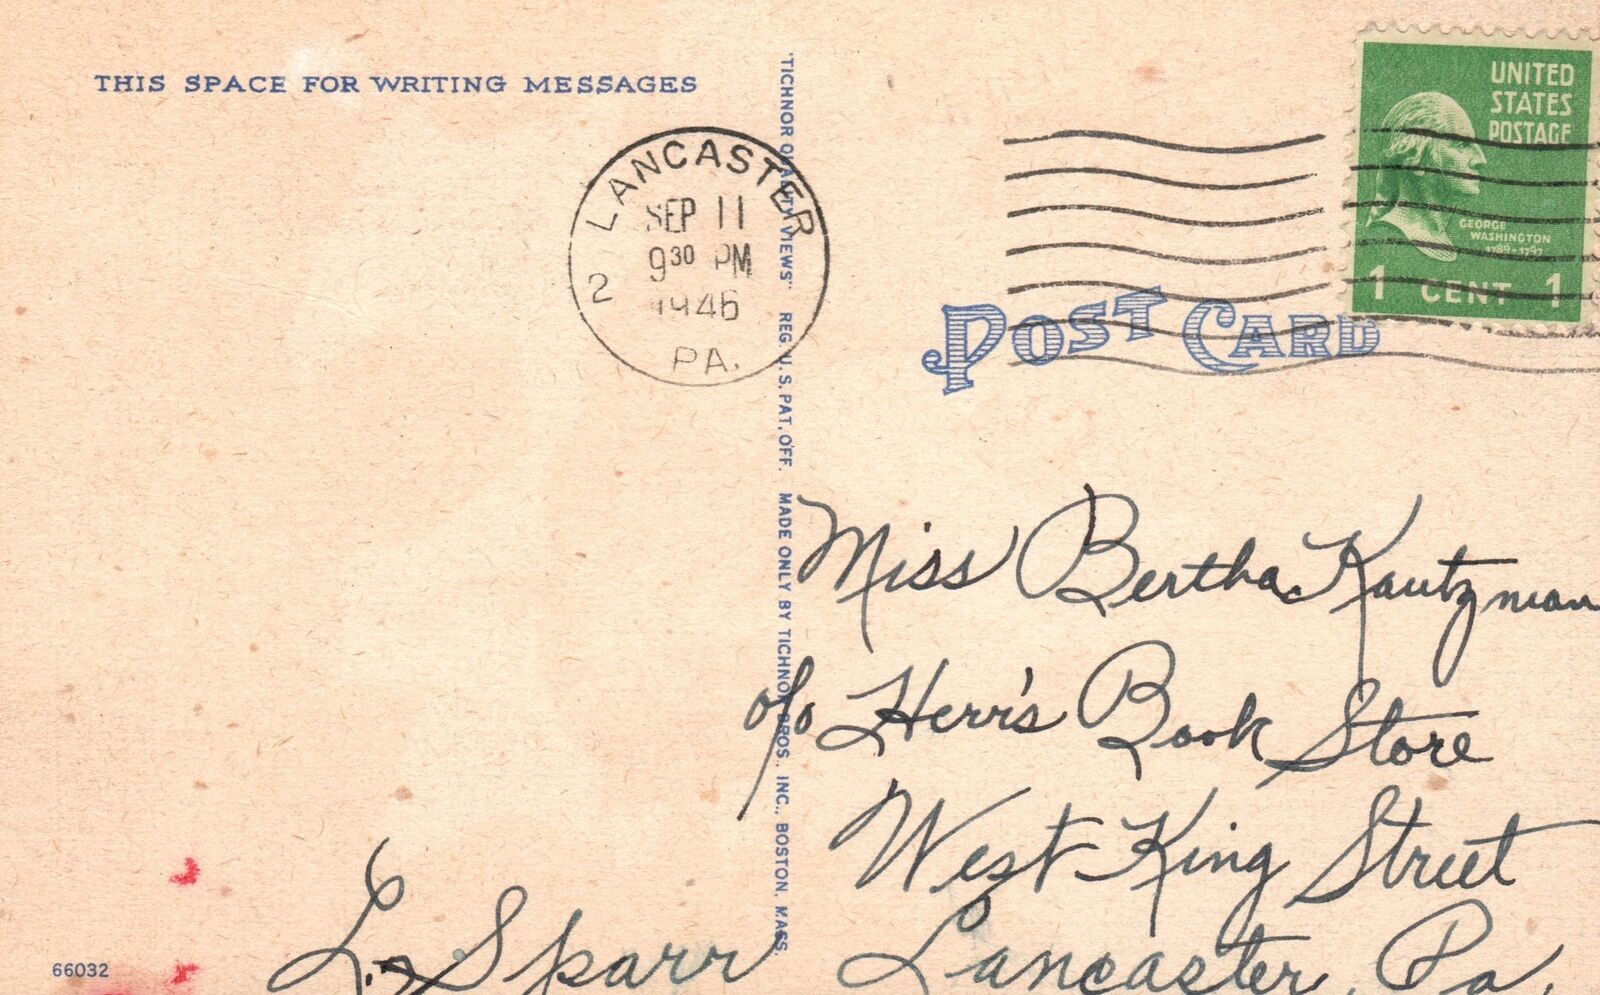 THIS SPACE FOR WRITING MESSAGES
"TICHNOR QUALITY VIEWS" REG. U. S. PAT. OFF. MADE ONLY BY TICHNOR BROS., INC., BOSTON, MASS.
LANCASTER
SEP 11
9 30 PM
1946
2
PA.
UNITED
STATES
POSTAGE
GEORGE
WASHINGTON
1789-1797
1 CENT 1
POST CARD
Miss Bertha Kautzman
c/o Herr's Book Store
West King Street
Lancaster, Pa.
L. Sparr
66032